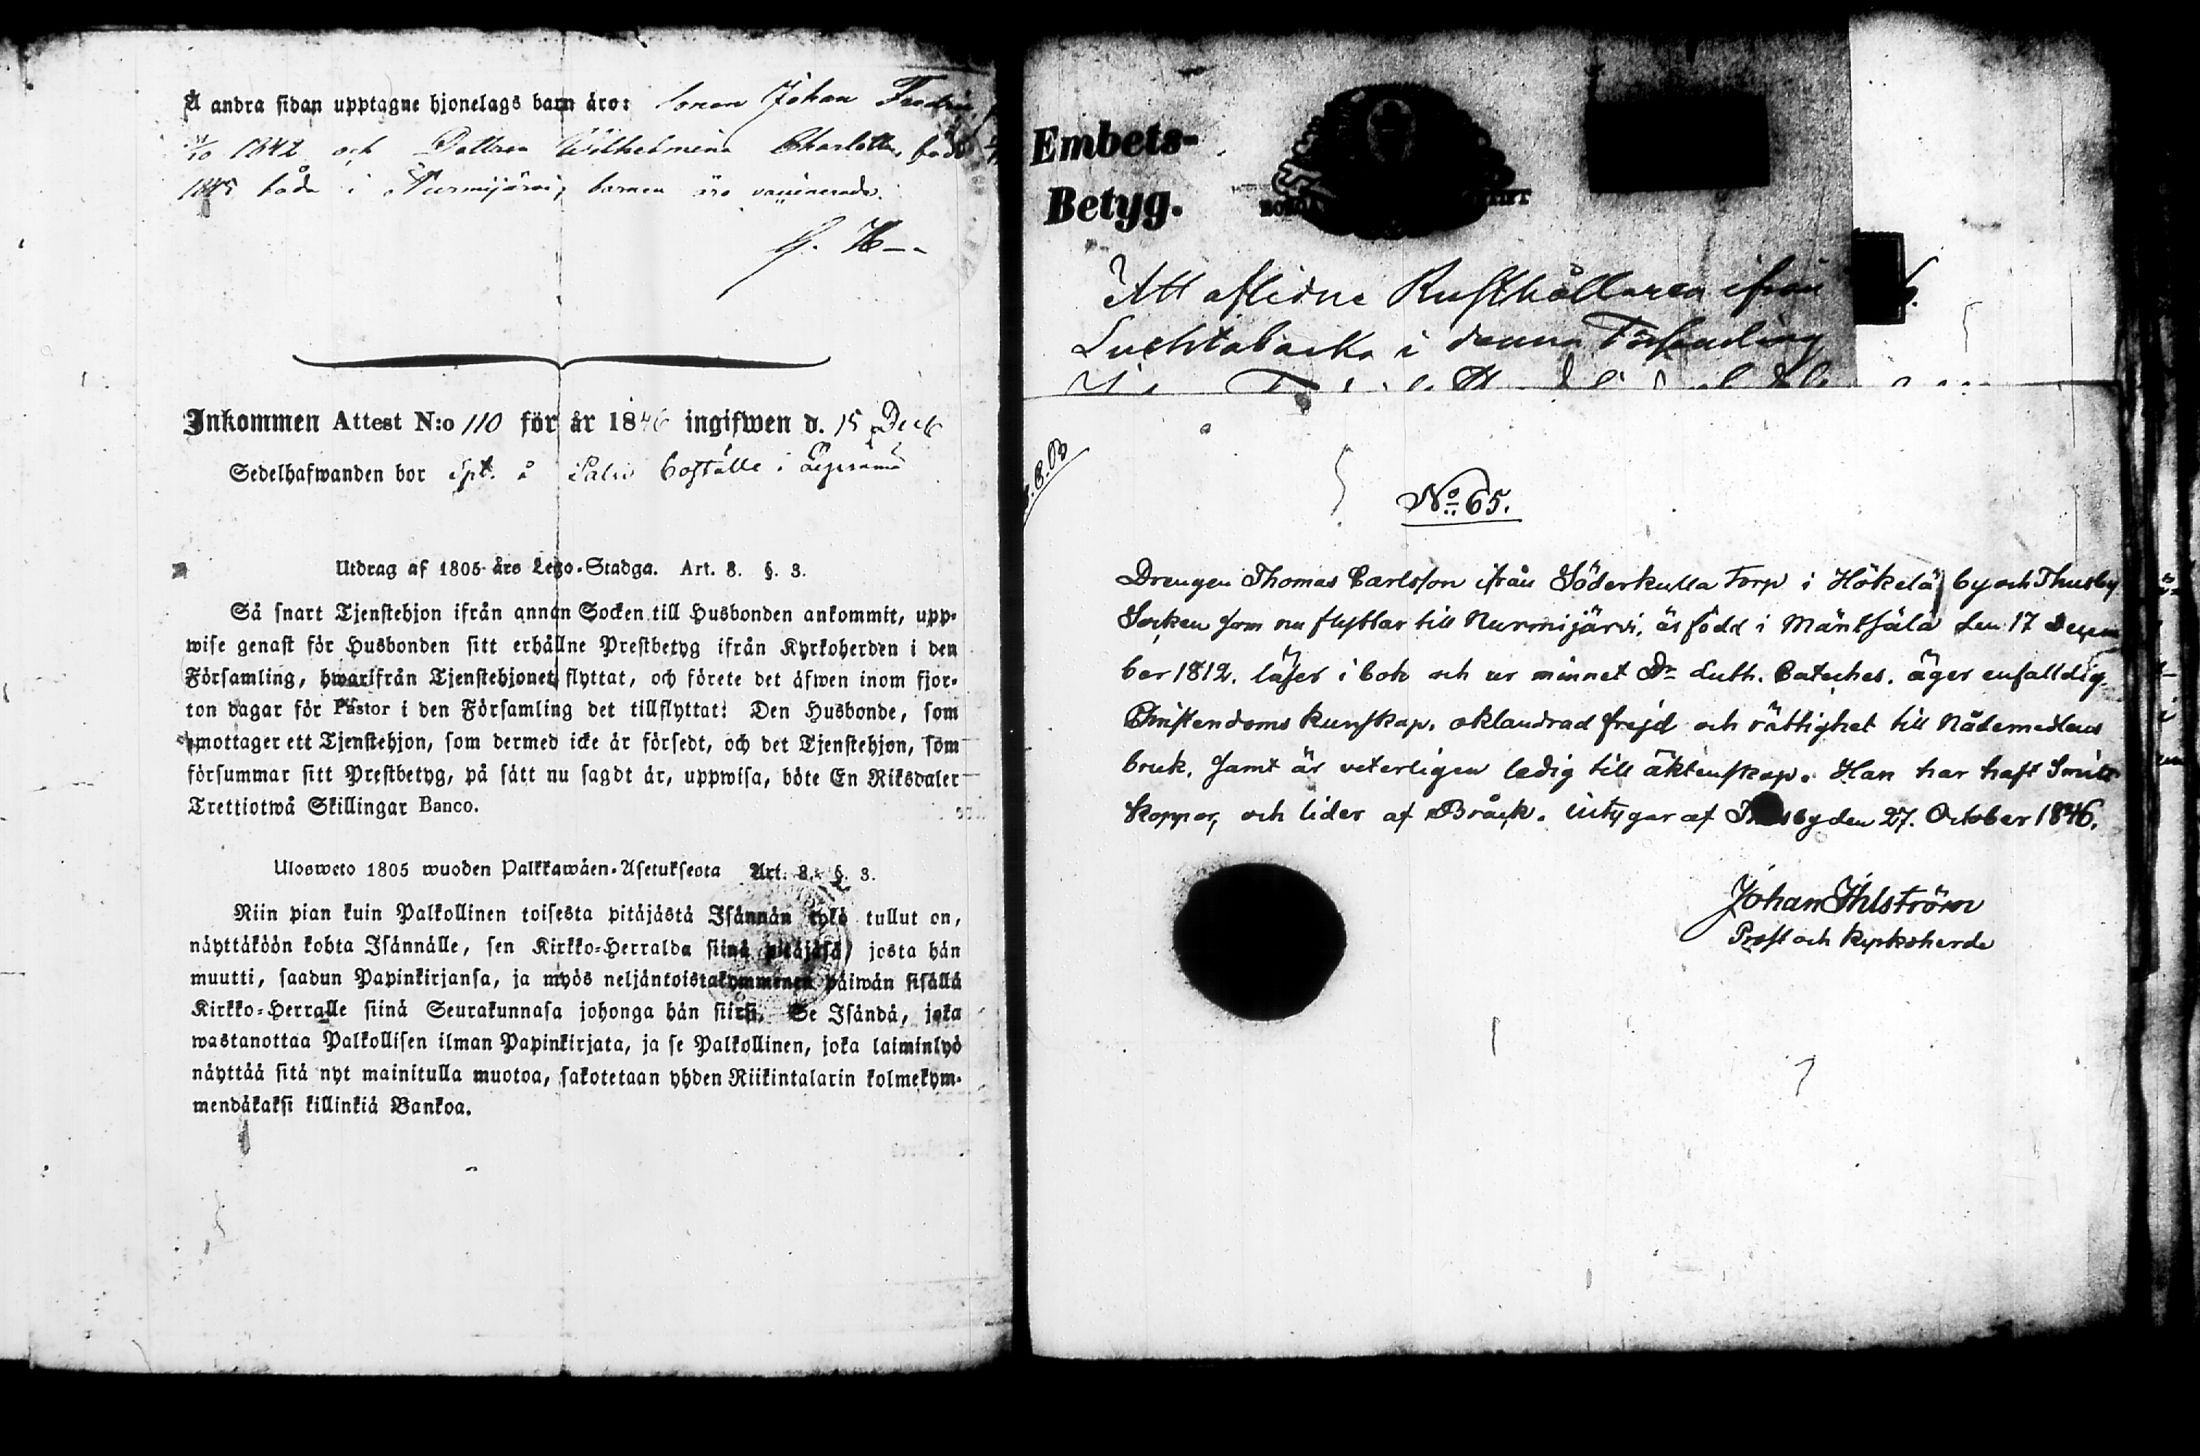 Å andra sidan upptagne hjonelags barn äro: sonen Johan Fredric
1842 och Dottren Wilhelmina Charlotta, född
1845 båda i Nurmijärvi, barnen äro vaccinerade.
G. H—
Inkommen Attest N:o 110 för år 1846 ingifwen d. 15 Decb
Sedelhafwanden bor Spt. å Palis Boställe i Lepsämä
Utdrag af 1805 års Lego-Stadga. Art. 8. §. 3.
Så snart Tjenstehjon ifrån annan Socken till Husbonden ankommit, upp-
wise genast för Husbonden sitt erhållne Prestbetyg ifrån Kyrkoherden i den
Församling, hwarifrån Tjenstehjonet flyttat, och förete det äfwen inom fjor-
ton dagar för Pastor i den Församling det tillflyttat: Den Husbonde, som
emottager ett Tjenstehjon, som dermed icke är försedt, och det Tjenstehjon, som
försummar sitt Prestbetyg, på sätt nu sagdt är, uppwisa, böte En Riksdaler
Trettiotwå Skillingar Banco.
Ulosweto 1805 wuoden Palkkawäen-Asetuksesta Art. 8. §. 3.
Niin pian kuin Palkollinen toisesta pitäjästä Isännän tykö tullut on,
näyttäköön kohta Isännälle, sen Kirkko-Herralda siinä pitäjäsä, josta hän
muutti, saadun Papinkirjansa, ja myös neljäntoistakymmenen päiwän sisällä
Kirkko-Herralle siinä Seurakunnasa johonga hän siirsi. Se Isändä, joka
wastanottaa Palkollisen ilman Papinkirjata, ja se Palkollinen, joka laiminlyö
näyttää sitä nyt mainitulla muotoa, sakotetaan yhden Riikintalarin kolmekym-
mendäkaksi killinkiä Bankoa.
Embets-
Betyg.
Att aflidne Rusthållaren ifrån
Luchtabacka i denna Församling
No 65.
Drengen Thomas Carlsson ifrån Söderkulla Torp i Hökelä by och Thusby
Socken som nu flyttar till Nurmijärvi, är född i Mäntsälä den 17 Decem
ber 1812. läser i bok och ur minnet Dr Luth. Cateches. äger enfalldig
Christendoms kunskap. oklandrad frejd och rättighet till Nådemedlens
bruk. samt är veterligen ledig till äktenskap. Han har haft Smitt
koppor, och lider af Bråck. intygar af Thusby den 27. October 1846.
Johan Ihlström
Prost och Kyrkoherde